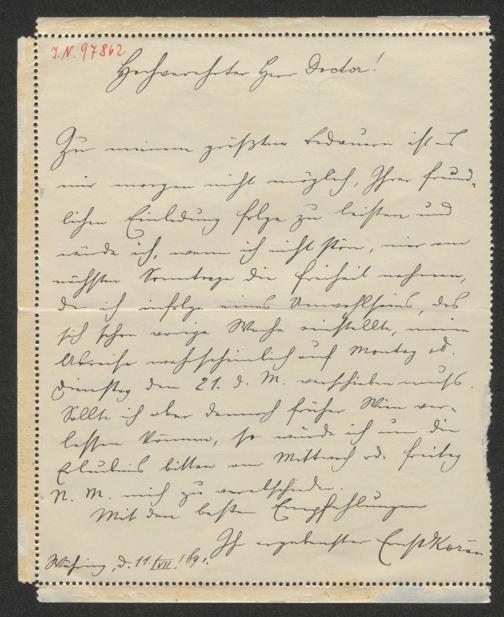 J.N. 97862
Hochverehrter Herr Doctor!
Zu meinem größten Bedauern ist es
mir morgen nicht möglich, Ihrer freund-
lichen Einladung folge zu leisten und
würde ich, wenn ich nicht störe, mir am
nächsten Sonntage die Freiheit nehmen,
da ich infolge eines Unwohlseins, das
sich schon vorige Woche einstellte, meine
Abreise wahrscheinlich auf Montag od.
Dienstag den 21. d. M. verschieben muß.
Sollte ich aber dennoch früher Wien ver-
lassen können, so würde ich um die
Erlaubnis bitten am Mittwoch od. Freitag
N. M. mich zu verabschieden.
Mit den besten Empfehlungen
Ihr ergebenster Ernst
d. 11./VII. 189